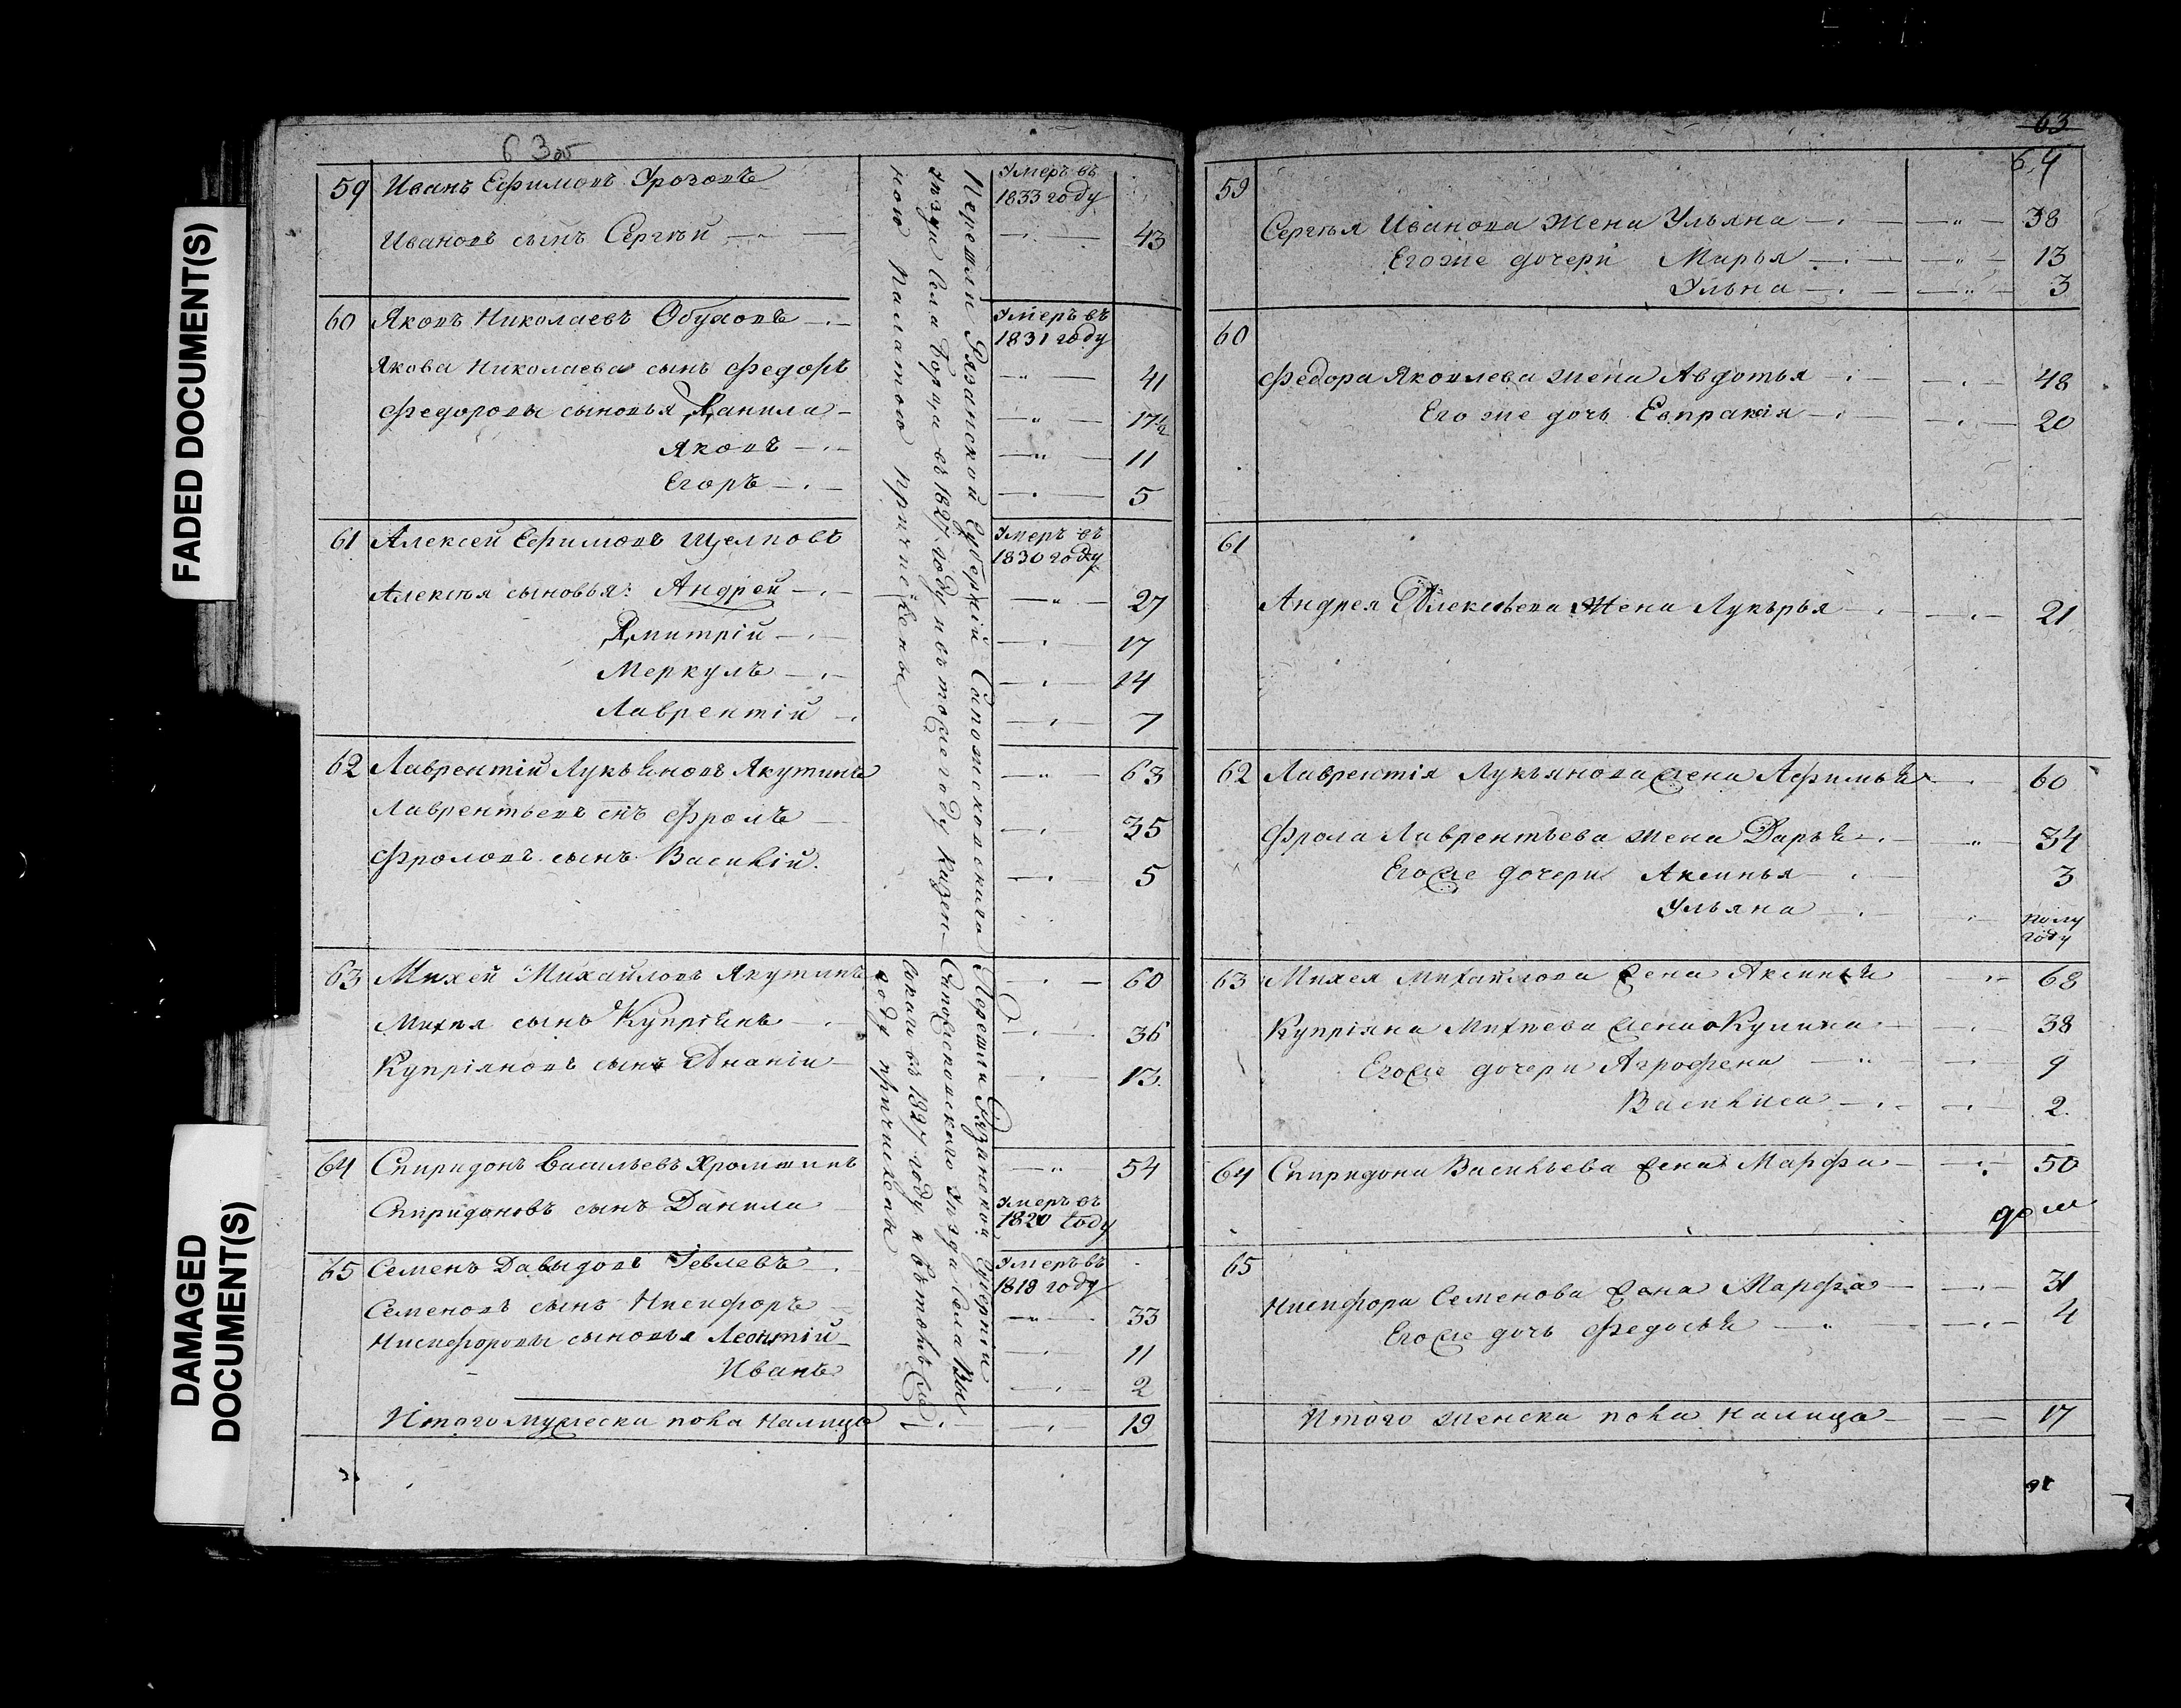 FADED DOCUMENT(S)
DAMAGED
DOCUMENT(S)
63 об
59 Иванъ Ефимовъ Грозовъ Умеръ въ
1833 году
Ивановъ сынъ Сергѣй 43
60 Яковъ Николаевъ Обуховъ Умеръ въ
1831 году
Якова Николаева сынъ Федоръ 41
Федоровы сыновья Данила 17½
Яковъ 11
Егоръ 5
61 Алексей Ефимовъ Щелповъ Умеръ въ
1830 году
Алексѣя сыновья: Андрей 27
Дмитрій 17
Меркулъ 14
Лаврентій 7
62 Лаврентій Лукьяновъ Якутинъ 63
Лаврентьевъ снъ Фролъ 35
Фроловъ сынъ Василій 5
63 Михей Михайловъ Якутинъ 60
Михѣя сынъ Купріянъ 36
Купріяновъ сынъ Ананій 13
64 Спиридонъ Васильевъ Хромшинъ 54
Спиридоновъ сынъ Данила Умеръ въ
1820 году
65 Семенъ Давыдовъ Іевлевъ Умеръ въ
1818 году
Семеновъ сынъ Никифоръ 33
Никифоровы сыновья Леонтій 11
Иванъ 2
Итого мужеска пола налицо 19
Перешли Рязанской Губерніи Сапожсковскаго
уѣзда села Борца въ 1827 году и въ томже году Казен-
ною палатою причислены
Перешли Рязанской Губерніи
Сапожсковскаго уѣзда Села Вы
въ 1827 году и въ томъ же
году причислены
63
64
59
Сергѣя Иванова жена Ульяна 38
Егоже дочери Марья 13
Ульна 3
60
Федора Яковлева жена Авдотья 48
Его же дочь Евпраксія 20
61
Андрея Алексѣева жена Лукѣрья 21
62 Лаврентія Лукьянова жена Афимья 60
Фрола Лаврентьева жена Дарья 34
Егоже дочери Аксинья 3
Ульяна полу
году
63 Михея Михайлова жена Аксинья 68
Купріяна Михѣева жена Акулина 38
Егоже дочери Агрофена 9
Василиса 2
64 Спиридона Васильева жена Марфа 50
65
Никифора Семенова жена Марфа 31
Егоже дочь Федосья 4
Итого женска пола налицо 17